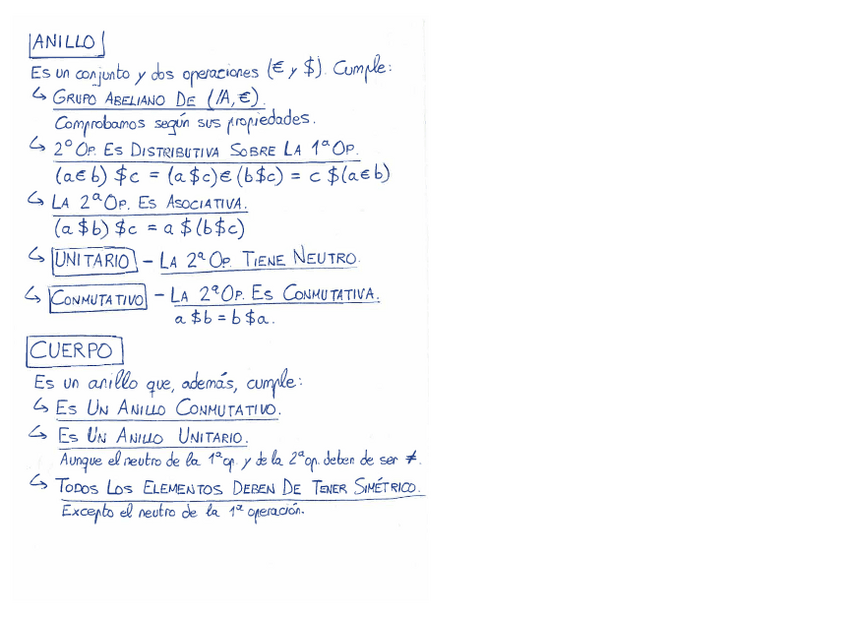 ANILLO
Es un conjunto y dos operaciones (€ y $). Cumple:
↳ GRUPO ABELIANO DE (/A, €).
Comprobamos según sus propiedades.
↳ 2º OP. ES DISTRIBUTIVA SOBRE LA 1ª OP.
(a€b) $c = (a$c)€(b$c) = c $(a€b)
↳ LA 2ª OP. ES ASOCIATIVA.
(a$b) $c = a $(b$c)
↳ UNITARIO – LA 2ª OP. TIENE NEUTRO.
↳ CONMUTATIVO – LA 2ª OP. ES CONMUTATIVA.
a $b = b $a.
CUERPO
Es un anillo que, además, cumple:
↳ ES UN ANILLO CONMUTATIVO.
↳ ES UN ANILLO UNITARIO.
Aunque el neutro de la 1ª op. y de la 2ª op. deben de ser ≠.
↳ TODOS LOS ELEMENTOS DEBEN DE TENER SIMÉTRICO.
Excepto el neutro de la 1ª operación.